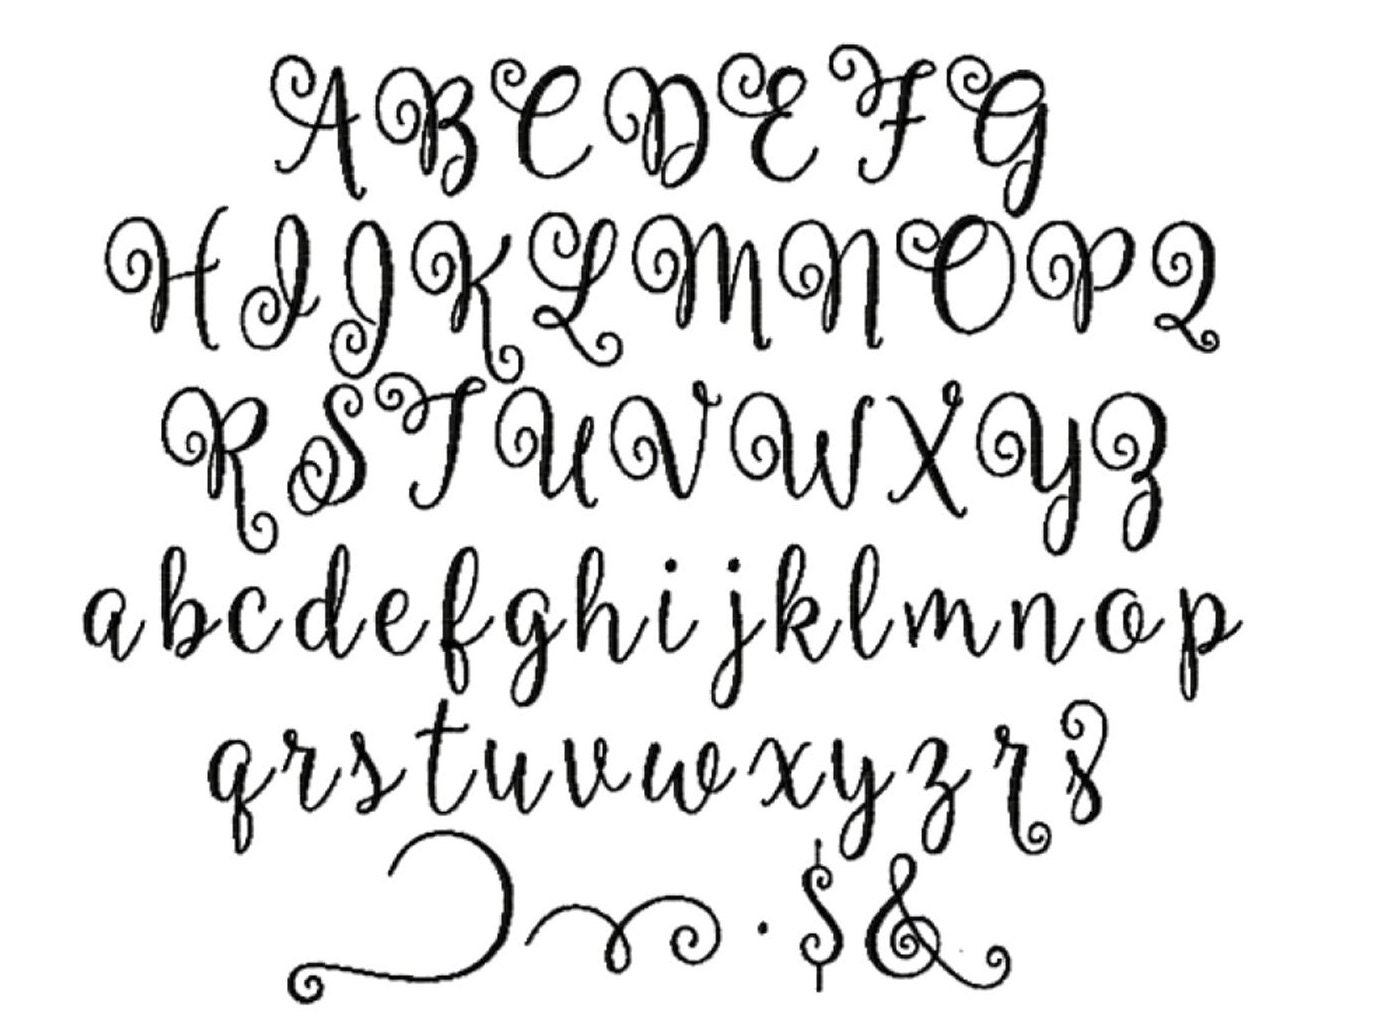 A B C D E F G
H I J K L M N O P Q
R S T U V W X Y Z
a b c d e f g h i j k l m n o p
q r s t u v w x y z r s
. $ &